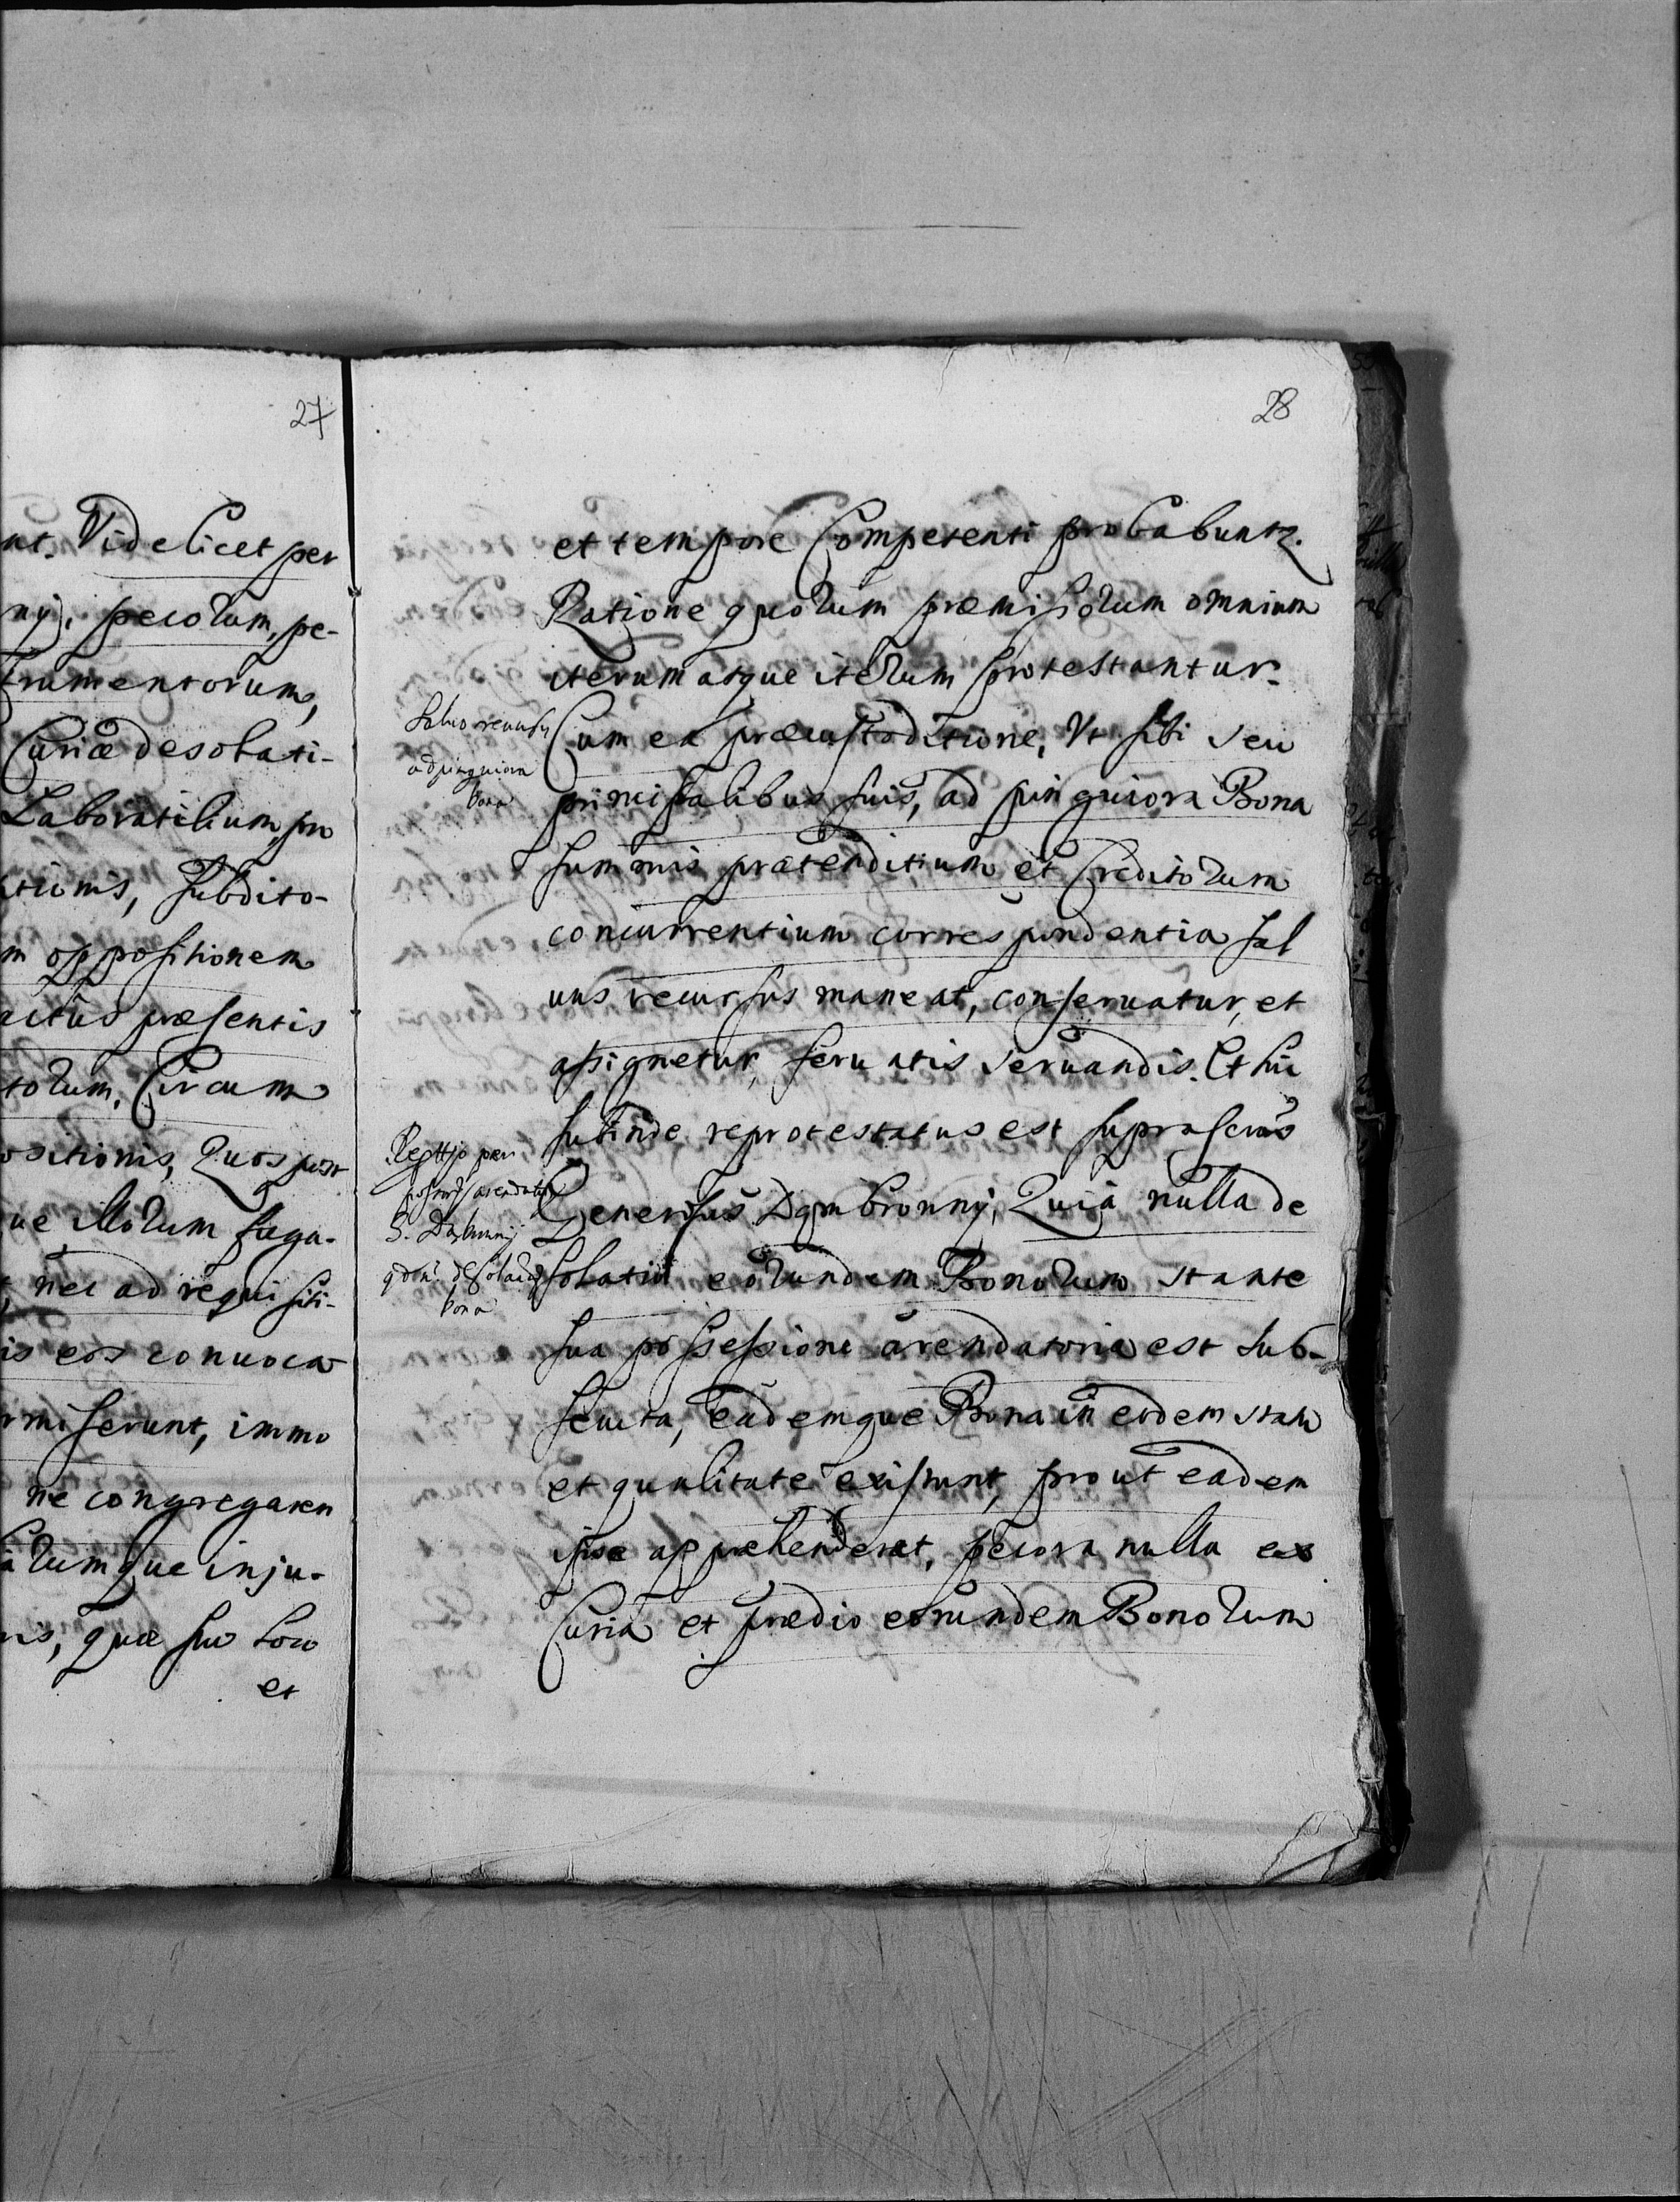 27
nt. Videlicet per
nÿ, pecorum, pe-
trumentorum,
Curiæ desolati-
Laboratilium, pro
ctionis, Subdito-
m oppositionem
actus præsentis
torum, Circum
ositionis, Quos post
ue illorum fuga-
nec ad requisiti-
is eos conuoca
rmiserunt, immo
ne congregaren
arumque inju-
is, quæ suo Loco
et
28
et tempore Competenti probabuntr.
Ratione quorum præmissorum omnium
iterum atque iterum protestantur.
Cum ea præcustoditione, Vt sibi seu
principalibus suis, ad pinguiora Bona
summis prætenditium et Creditorum
concurrentium correspondentia sal
uus recursus maneat, conseruatur, et
assignetur, seruatis seruandis. Et hic
subinde reprotestatus est suprascrus
Generosus Dąmbronnÿ, Quia nulla de
solatio eorundem Bonorum stante
sua possessione arendatoria est sub-
secuta, eademque Bona in eodem statu
et qualitate existunt, prout eadem
ipse appræhenderat, pecora nulla ex
Curia et prædio eorundem Bonorum
Saluo recursu
ad pinguiora
bona
Repttio
arendat
G.
desolauit
bona